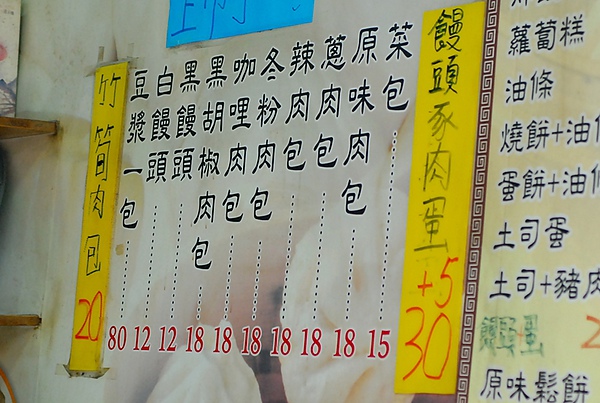 蘿蔔糕
油條
燒餅+油
蛋餅+油
土司蛋
土司+豬肉
原味鬆餅
饅頭豕肉蛋+5 30
菜包 15
原味肉包 18
蔥肉包 18
辣肉包 18
冬粉肉包 18
咖哩肉包 18
黑胡椒肉包 18
黑饅頭 12
白饅頭 12
豆漿一包 80
竹筍肉包 20